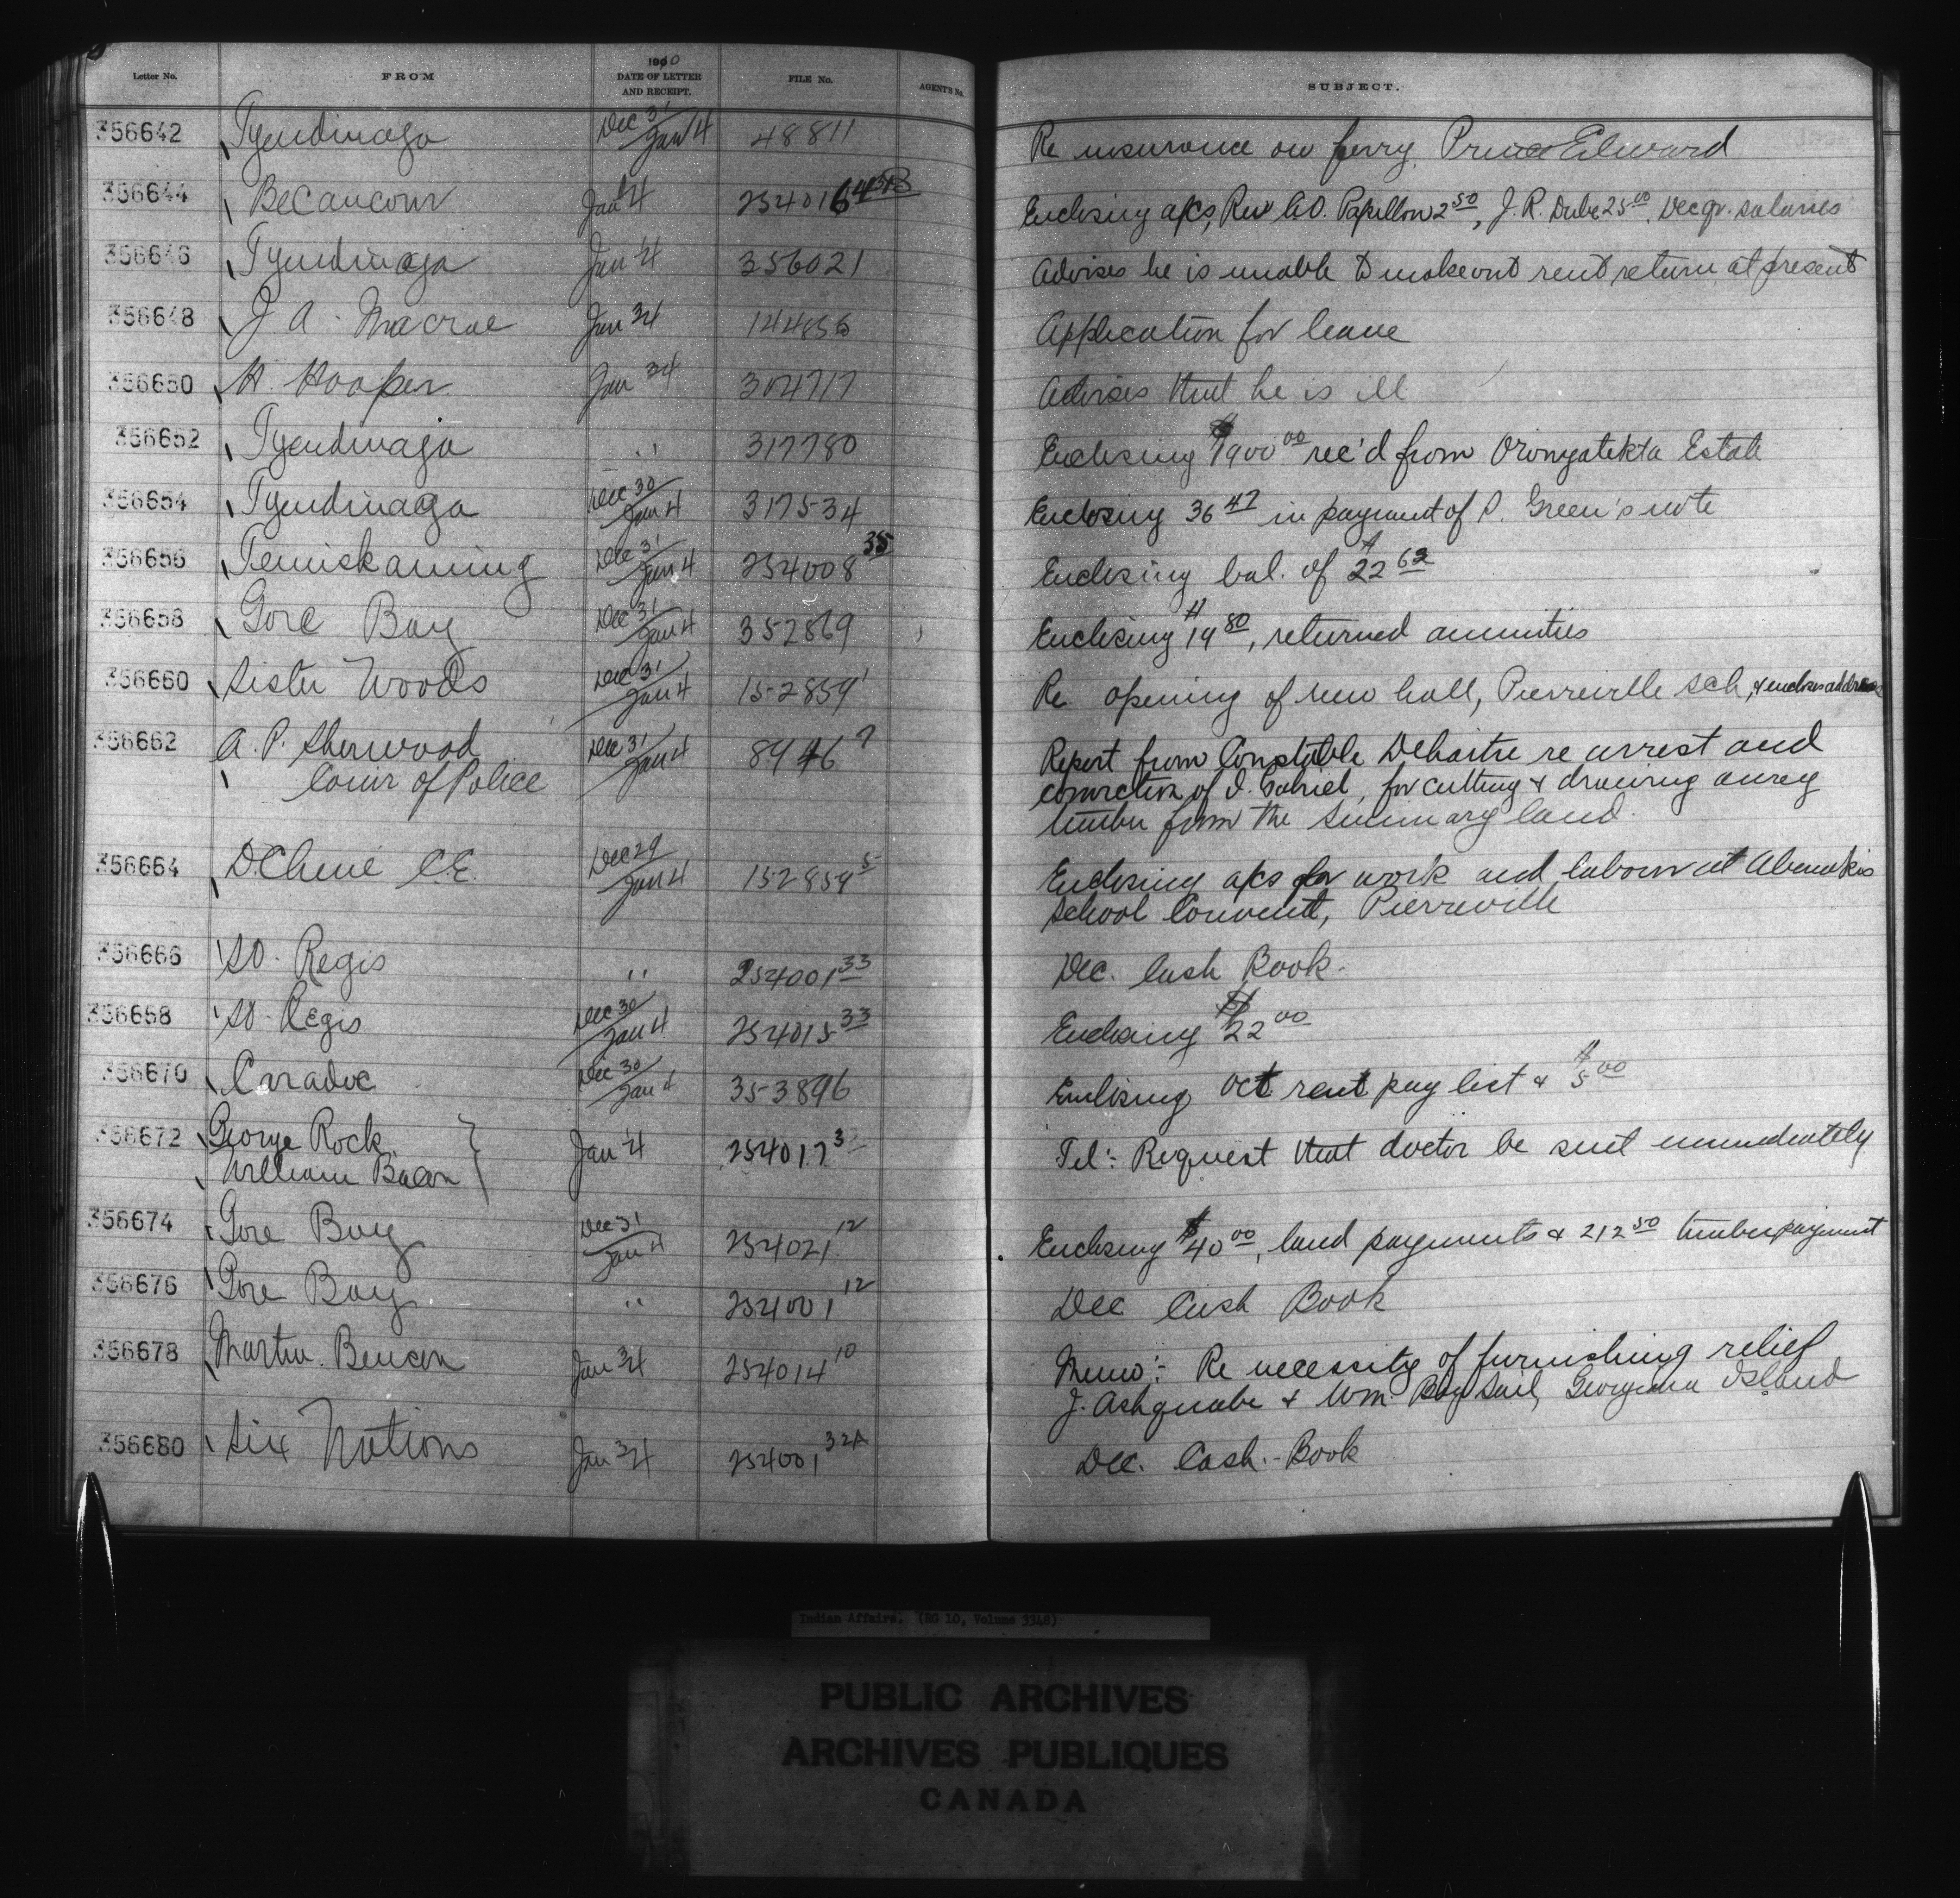 Letter No. FROM 1910 DATE OF LETTER AND RECEIPT. FILE No. AGENT'S No. SUBJECT.
356642 Tyendinaga Dec 31/Jan 4 48811 Re insurance on ferry Prince Edward
356644 Becancour Jan 4 254016 Enclosing a/cs, Rev A.O. Papillon 2 50, J.R. Dube 25 00, Dec qr. salaries
356646 Tyendinaga Jan 4 356021 Advises he is unable to make out rent return at present
356648 J A. Macrae Jan 3/4 144856 Application for leave
356650 H. Hooper Jan 3/4 304717 Advises that he is ill
356652 Tyendinaga " 317780 Enclosing $1900 00 rec'd from Oronyatekta Estate
356654 Tyendinaga Dec 30/Jan 4 317534 Enclosing 36 47 in payment of P. Green's note
356656 Temiskaming Dec 31/Jan 4 254008 35 Enclosing bal. of $22 62
356658 Gore Bay Dec 31/Jan 4 352869 Enclosing $19 80, returned annuities
356660 Sister Woods Dec 31/Jan 4 152859 1 Re opening of new hall, Pierreville Sch, & encloses address
356662 A. P. Sherwood Dec 31/Jan 4 8946 7 Report from Constable re arrest and
Comr of Police conviction of I. Gabriel, for cutting & drawing away
timber from the Seminary land.
356664 D.Chene C.E. Dec 29/Jan 4 152859 5 Enclosing a/cs for work and labour at Abenakis
School Convent, Pierreville
356666 St. Regis " 254001 33 Dec. Cash Book.
356668 St. Regis Dec 30/Jan 4 254015 33 Enclosing $22 00
356670 Caradoc Dec 30/Jan 4 353896 Enclosing Oct rent pay list & $5 00
356672 George Rock } Jan 4 254017 3 Tel:- Request that doctor be sent immediately
William Bacon
356674 Gore Bay Dec 31/Jan 4 254021 12 Enclosing $40 00, land payments & 212 50 timber payment
356676 Gore Bay " 254001 12 Dec Cash Book
356678 Martin Benson Jan 3/4 254014 10 Memo:- Re necessity of furnishing relief
J. Ashquabe & Wm Big Sail, Georgina Island
356680 Six Nations Jan 3/4 254001 32A Dec. Cash-Book
Indian Affairs. (RG 10, Volume 3348)
PUBLIC ARCHIVES
ARCHIVES PUBLIQUES
CANADA